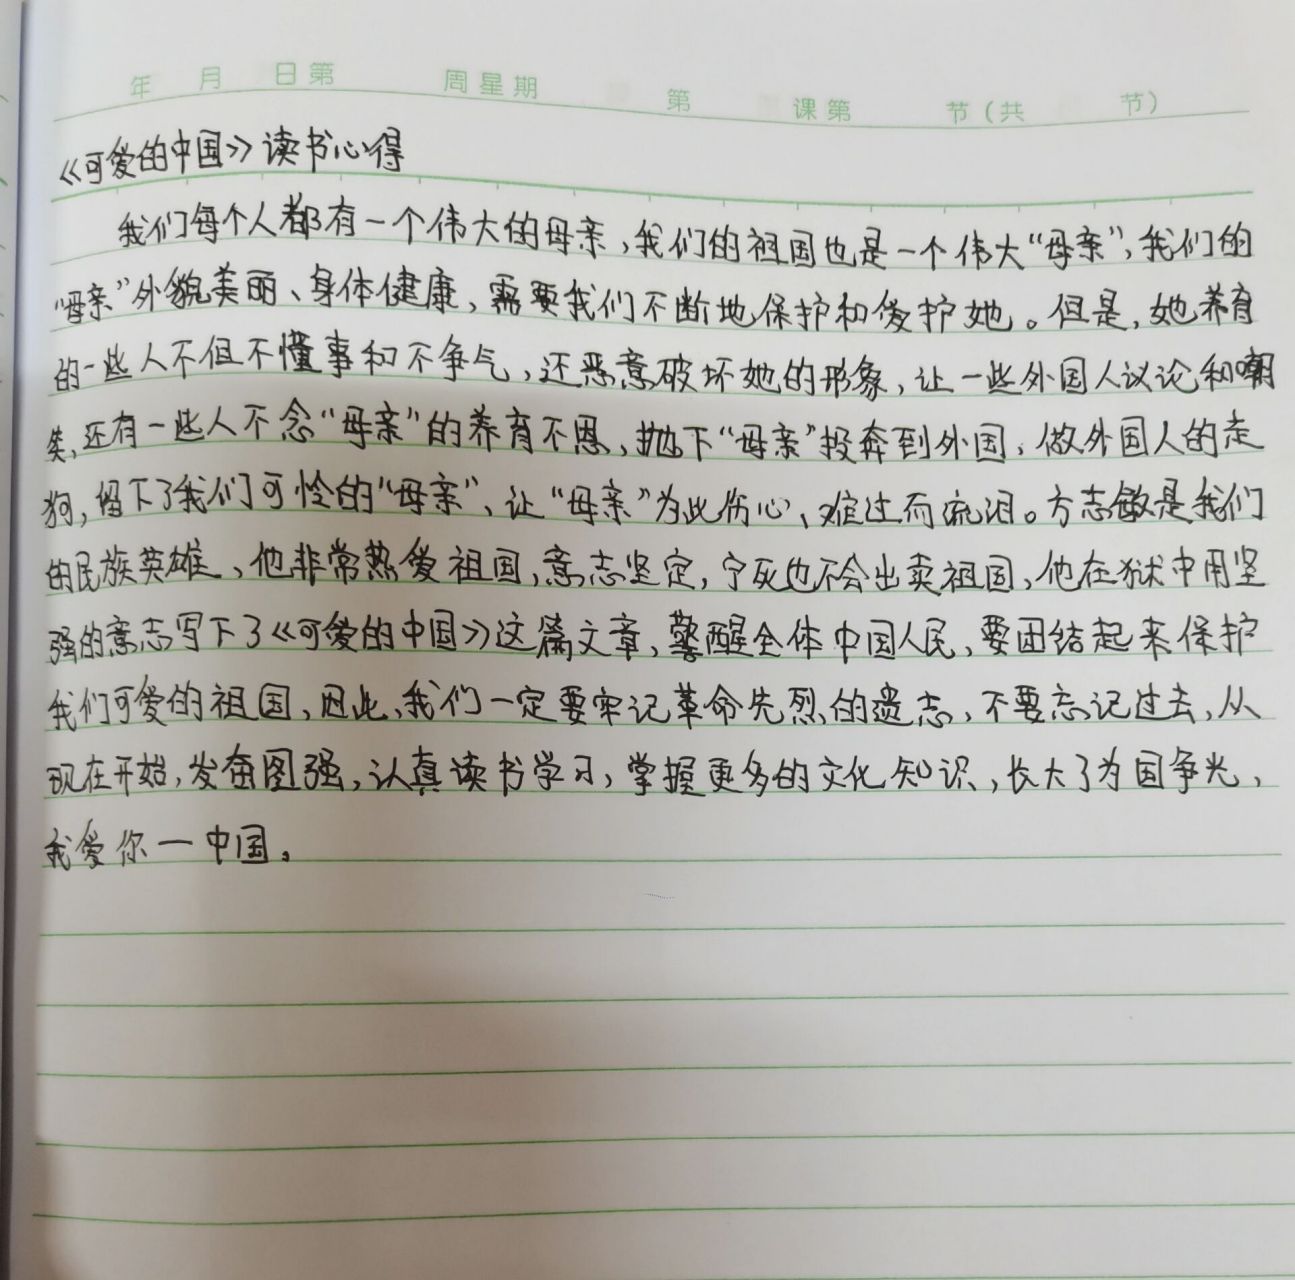 年 月 日第 周星期 第 课第 节(共 节)
《可爱的中国》读书心得
我们每个人都有一个伟大的母亲,我们的祖国也是一个伟大“母亲”,我们的
“母亲”外貌美丽、身体健康,需要我们不断地保护和爱护她。但是,她养育
的一些人不但不懂事和不争气,还恶意破坏她的形象,让一些外国人议论和嘲
笑,还有一些人不念“母亲”的养育不恩,抛下“母亲”投奔到外国,做外国人的走
狗,留下了我们可怜的“母亲”、让“母亲”为此伤心、难过而流泪。方志敏是我们
的民族英雄,他非常热爱祖国,意志坚定,宁死也不会出卖祖国,他在狱中用坚
强的意志写下了《可爱的中国》这篇文章,警醒全体中国人民,要团结起来保护
我们可爱的祖国,因此,我们一定要牢记革命先烈的遗志,不要忘记过去,从
现在开始,发奋图强,认真读书学习,掌握更多的文化知识,长大了为国争光,
我爱你一中国。